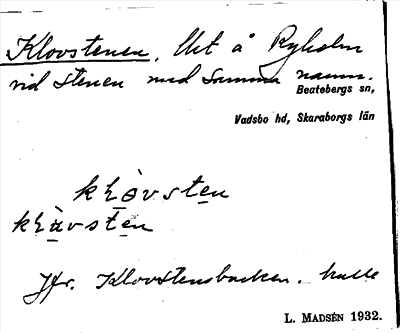 Klovstenen. Utt å Ryholm
vid stenen med samma namn.
Beatebergs sn,
Vadsbo hd, Skaraborgs län
kḷòvsten
kḷàvsten
Jfr. Klovstensbacken. kulle
L. MADSÉN 1932.